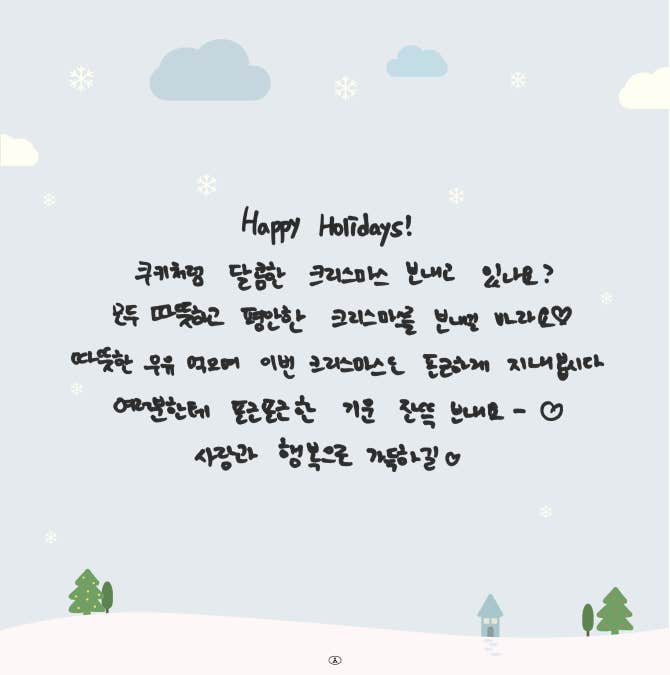 Happy Holidays!
쿠키처럼 달콤한 크리스마스 보내고 있나요?
모두 따뜻하고 평안한 크리스마스를 보내길 바라요♡
따뜻한 우유 먹으며 이번 크리스마스도 포근하게 지내봅시다
여러분한테 포근포근한 기운 잔뜩 보내요 - ♡
사랑과 행복으로 가득하길♡